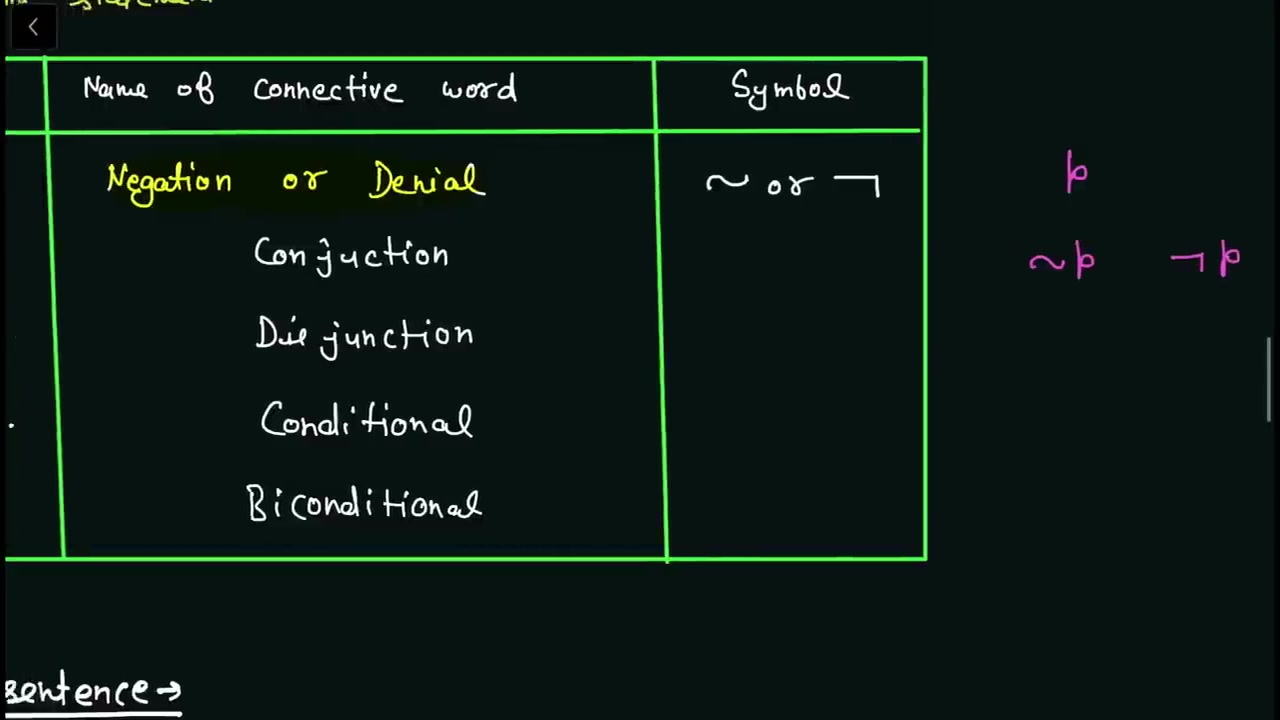 Name of connective word Symbol
Negation or Denial ~ or ¬ p
Conjuction ~p ¬p
Disjunction
Conditional
Biconditional
sentence→